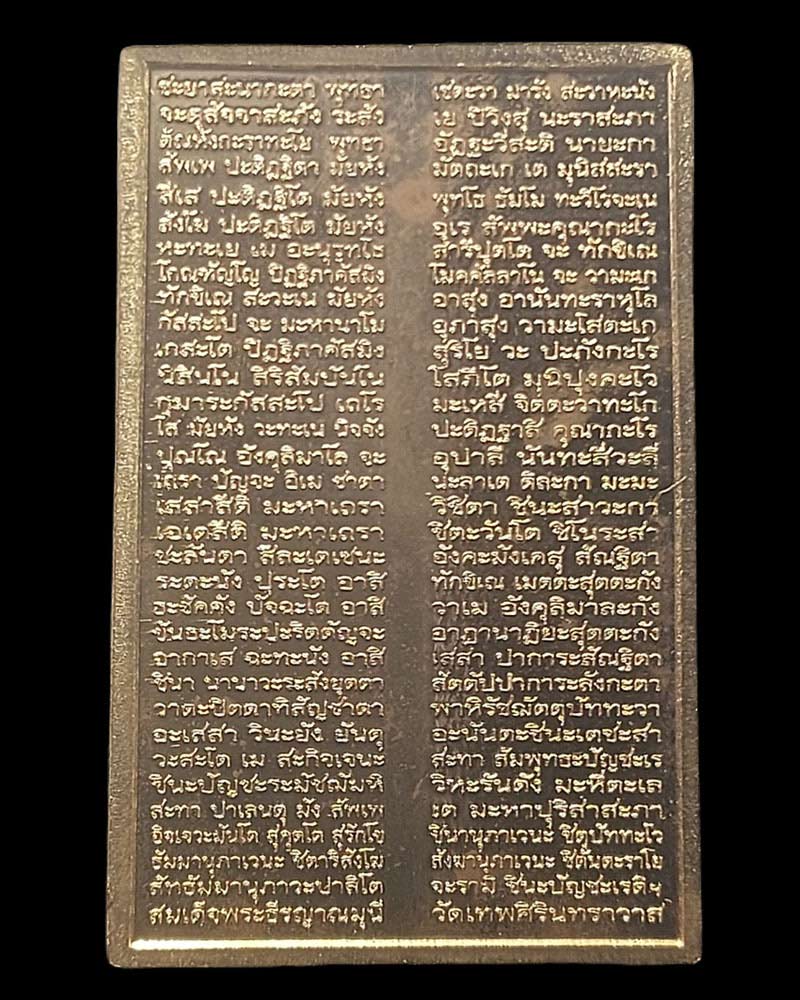 ชะยาสะนากะตา พุทธา เชตะวา มารัง สะวาหะนัง
จะตุสัจจาสะภัง ระสัง เย ปิวิงสุ นะราสะภา
ตัณหังกะราทะโย พุทธา อัฏฐะวีสะติ นายะกา
สัพเพ ปะติฏฐิตา มัยหัง มัตถะเก เต มุนิสสะรา
สีเส ปะติฏฐิโต มัยหัง พุทโธ ธัมโม ทะวีโรจะเน
สังโฆ ปะติฏฐิโต มัยหัง อุเร สัพพะคุณากะโร
หะทะเย เม อะนุรุทโธ สารีปุตโต จะ ทักขิเณ
โกณฑัญโญ ปิฏฐิภาคัสมิง โมคคัลลาโน จะ วามะเก
ทักขิเณ สะวะเน มัยหัง อาสุง อานันทะราหุโล
กัสสะโป จะ มะหานาโม อุภาสุง วามะโสตะเก
เกสะโต ปิฏฐิภาคัสมิง สุริโย วะ ปะภังกะโร
นิสินโน สิริสัมปันโน โสภีโต มุนิปุงคะโว
กุมาระกัสสะโป เถโร มะเหสี จิตตะวาทะโก
โส มัยหัง วะทะเน นิจจัง ปะติฏฐาสิ คุณากะโร
ปุณโณ อังคุลิมาโล จะ อุปาลี นันทะสีวะลี
เถรา ปัญจะ อิเม ชาตา นะลาเต ติละกา มะมะ
เสสาสีติ มะหาเถรา วิชิตา ชินะสาวะกา
เอเตสีติ มะหาเถรา ชิตะวันโต ชิโนระสา
ชะลันตา สีละเตเชนะ อังคะมังเคสุ สัณฐิตา
ระตะนัง ปุระโต อาสิ ทักขิเณ เมตตะสุตตะกัง
ธะชัคคัง ปัจฉะโต อาสิ วาเม อังคุลิมาละกัง
ขันธะโมระปะริตตัญจะ อาฏานาฏิยะสุตตะกัง
อากาเส ฉะทะนัง อาสิ เสสา ปาการะสัณฐิตา
ชินา นานาวะระสังยุตตา สัตตัปปาการะลังกะตา
วาตะปิตตาทิสัญชาตา พาหิรัชฌัตตุปัททะวา
อะเสสา วินะยัง ยันตุ อะนันตะชินะเตชะสา
วะสะโต เม สะกิจเจนะ สะทา สัมพุทธะปัญชะเร
ชินะปัญชะระมัชฌัมหิ วิหะรันตัง มะหีตะเล
สะทา ปาเลนตุ มัง สัพเพ เต มะหาปุริสาสะภา
อิจเจวะมันโต สุคุตโต สุรักโข ชินานุภาเวนะ ชิตุปัททะโว
ธัมมานุภาเวนะ ชิตาริสังโฆ สังฆานุภาเวนะ ชิตันตะราโย
สัทธัมมานุภาวะปาลิโต จะรามิ ชินะปัญชะเรติฯ
สมเด็จพระธีรญาณมุนี วัดเทพศิรินทราวาส